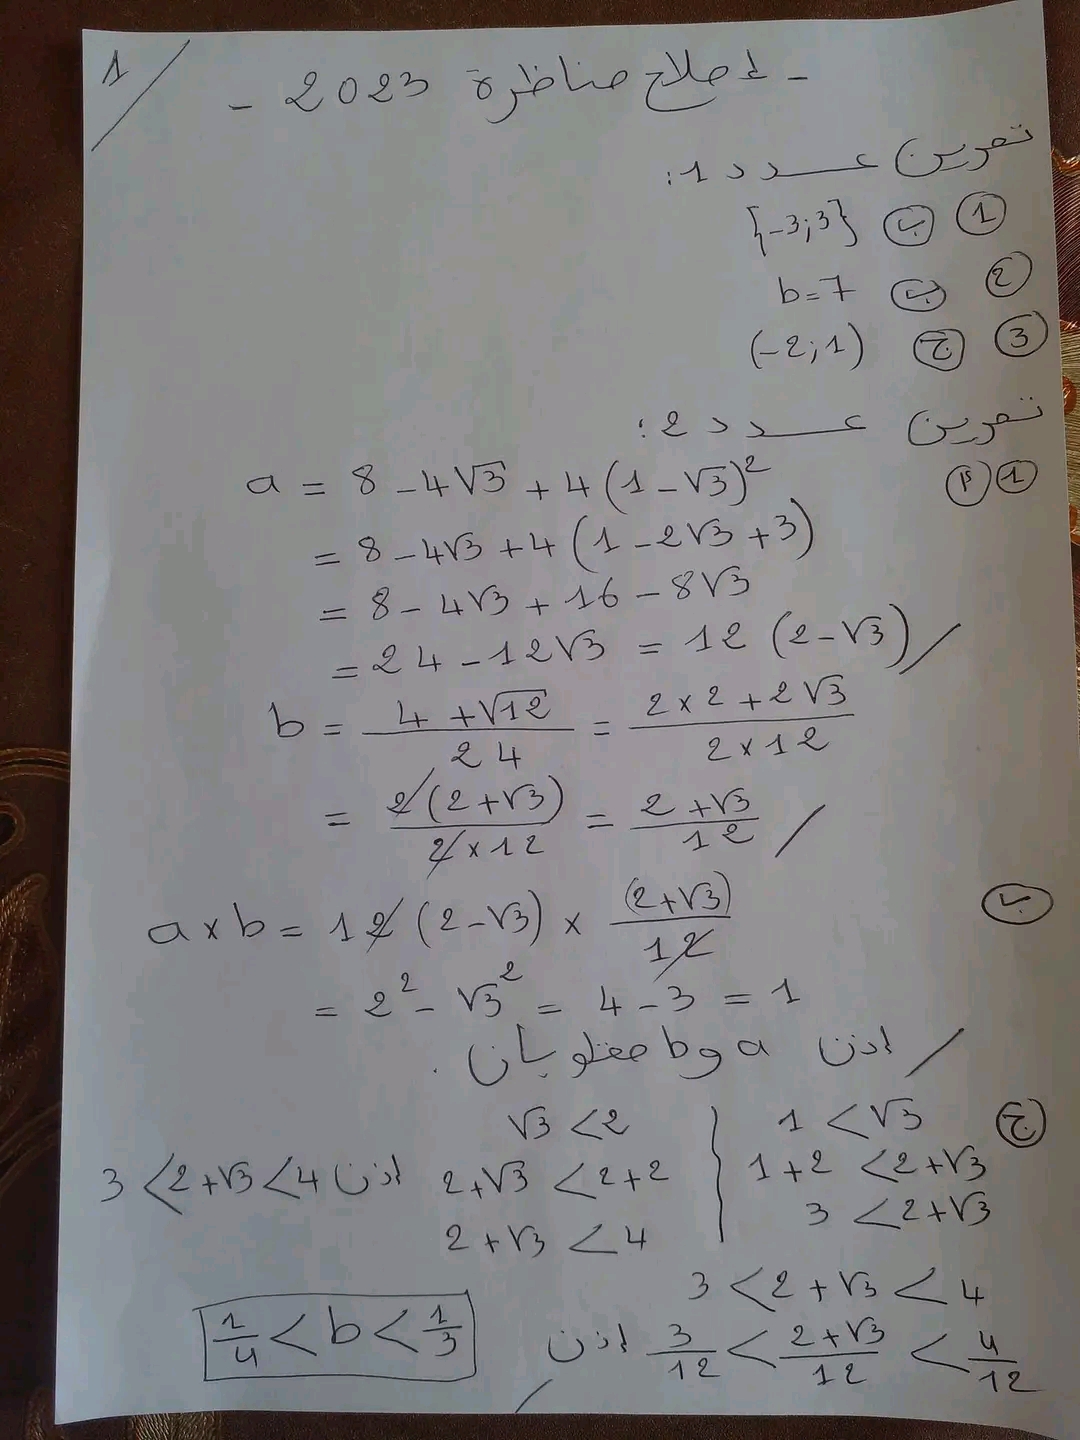 1
- إصلاح مناظرة 2023 -
تمرين عدد 1:
1 ب {-3;3}
2 ب b=7
3 ج (-2;1)
تمرين عدد 2:
1 أ a = 8 - 4√3 + 4(1-√3)²
= 8 - 4√3 + 4(1 - 2√3 + 3)
= 8 - 4√3 + 16 - 8√3
= 24 - 12√3 = 12(2-√3)
b = (4+√12)/24 = (2×2+2√3)/(2×12)
= 2(2+√3)/(2×12) = (2+√3)/12
ب a×b = 12(2-√3) × (2+√3)/12
= 2² - √3² = 4 - 3 = 1
إذن a و b مقلوبان.
ج 1 < √3 | √3 < 2
1+2 < 2+√3 | 2+√3 < 2+2 إذن 3 < 2+√3 < 4
3 < 2+√3 | 2+√3 < 4
3 < 2+√3 < 4
3/12 < (2+√3)/12 < 4/12 إذن 1/4 < b < 1/3